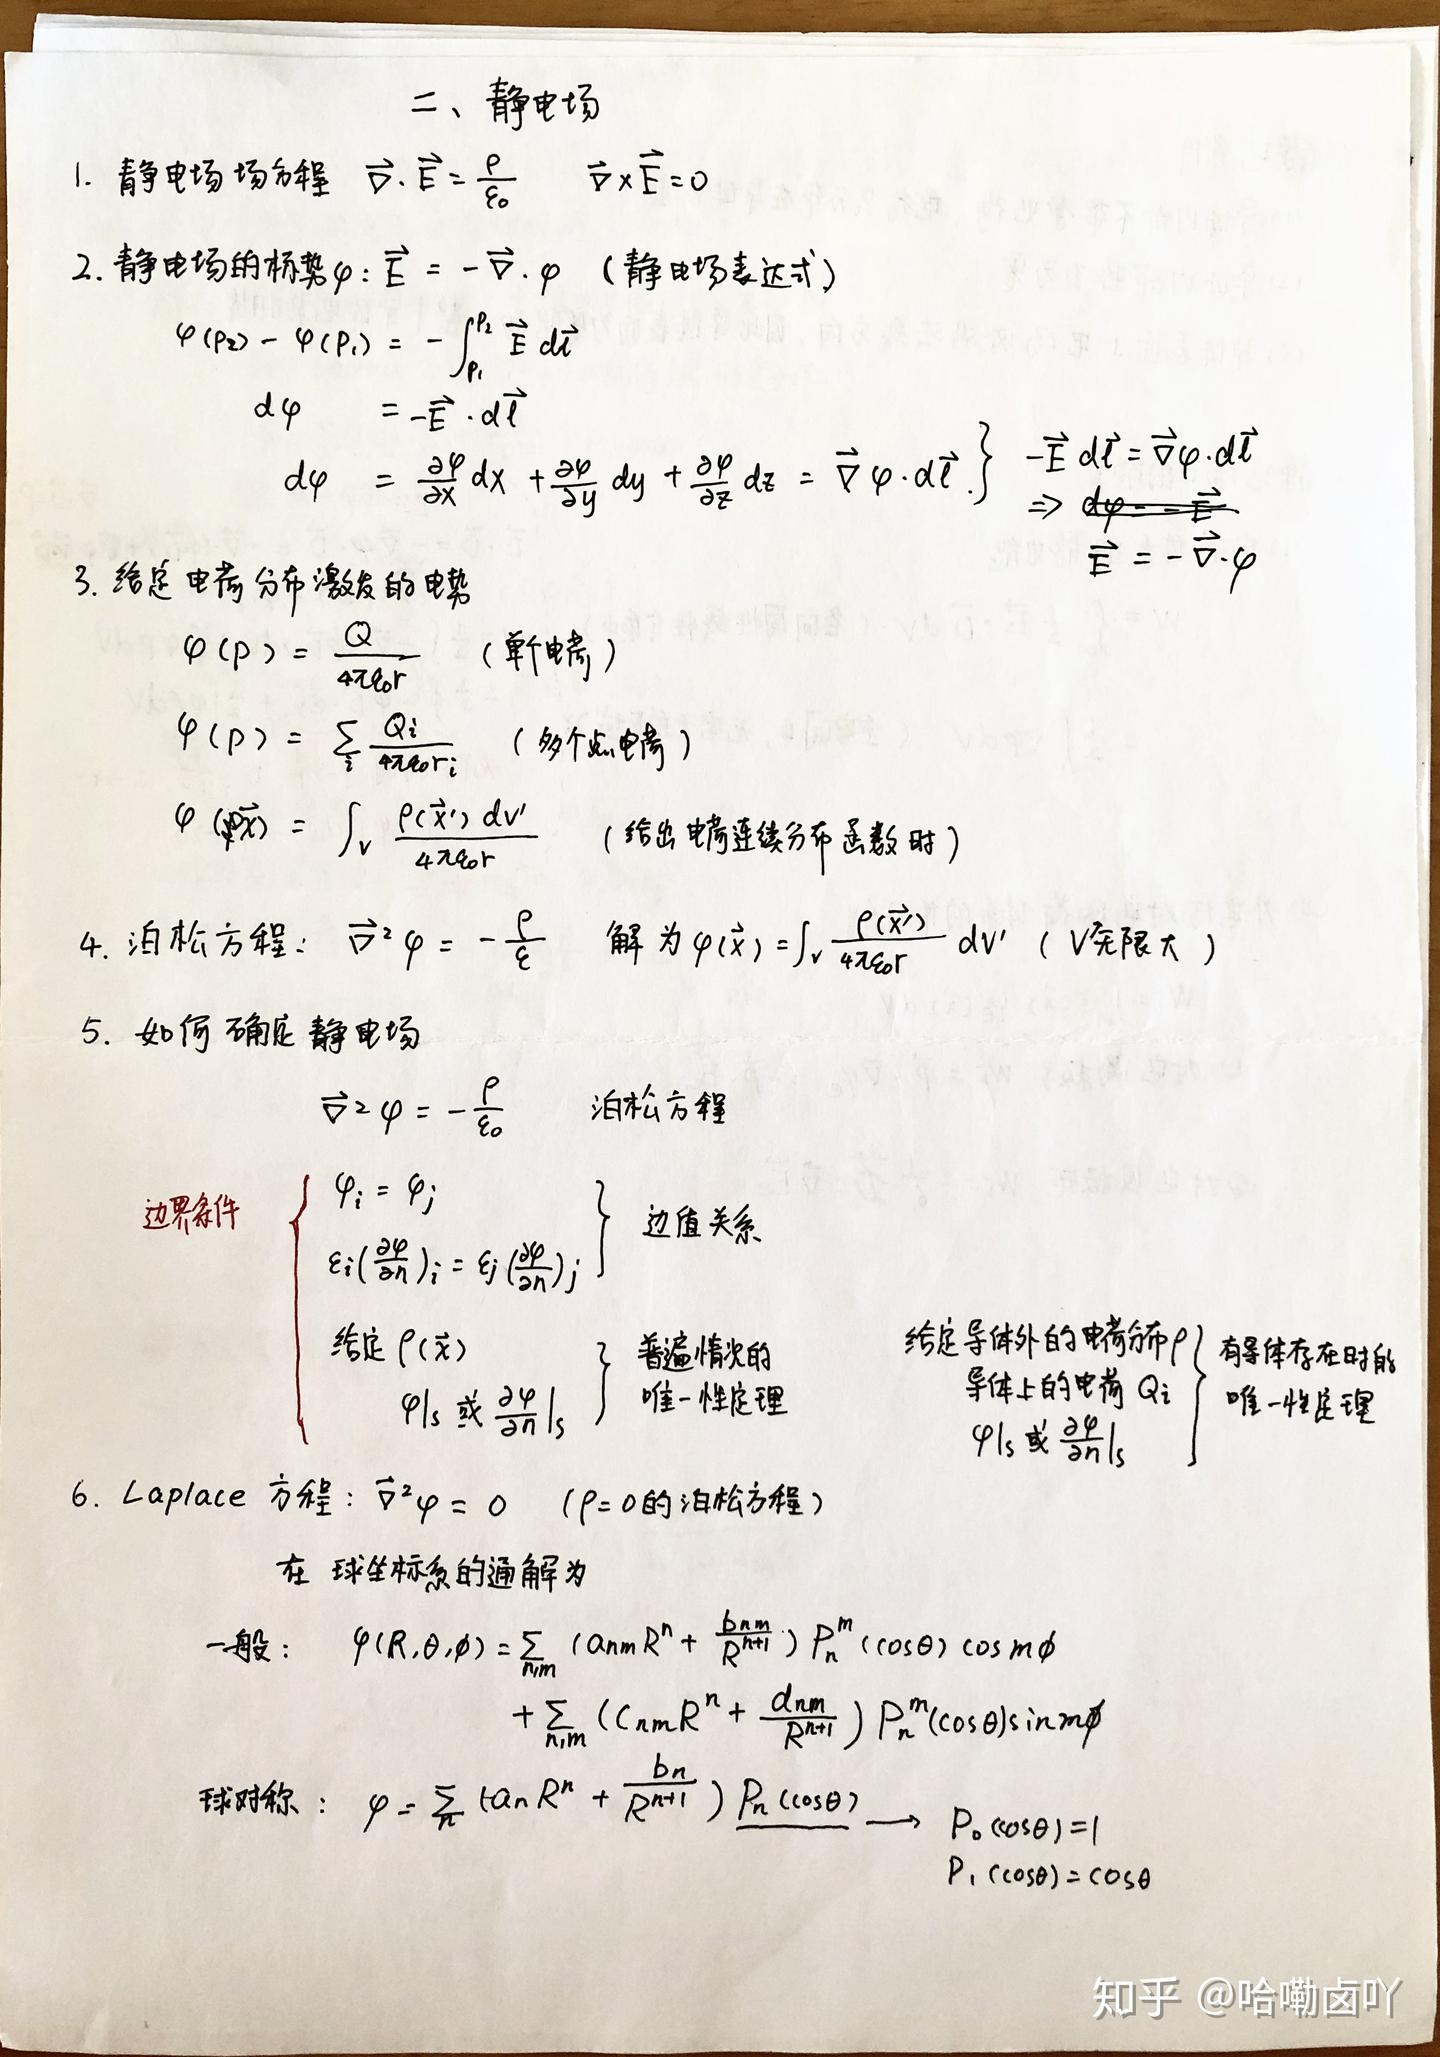 二、静电场
1. 静电场场方程 ∇⃗·E⃗ = ρ/ε₀ ∇⃗×E⃗ = 0
2. 静电场的标势φ: E⃗ = -∇⃗·φ (静电场表达式)
φ(P₂) - φ(P₁) = -∫_{P₁}^{P₂} E⃗ dl⃗
dφ = -E⃗·dl⃗
dφ = ∂φ/∂x dx + ∂φ/∂y dy + ∂φ/∂z dz = ∇⃗φ·dl⃗ } -E⃗ dl⃗ = ∇⃗φ·dl⃗
⇒ E⃗ = -∇⃗·φ
3. 给定电荷分布激发的电势
φ(P) = Q/4πε₀r (单个电荷)
φ(P) = Σ_i Q_i/4πε₀r_i (多个点电荷)
φ(x⃗) = ∫_V ρ(x⃗')dV'/4πε₀r (给出电荷连续分布函数时)
4. 泊松方程: ∇⃗²φ = -ρ/ε 解为 φ(x⃗) = ∫_V ρ(x⃗')/4πε₀r dV' (V无限大)
5. 如何确定静电场
∇⃗²φ = -ρ/ε₀ 泊松方程
边界条件 {
φ_i = φ_j
ε_i(∂φ/∂n)_i = ε_j(∂φ/∂n)_j
} 边值关系
给定ρ(x⃗)
φ|_S 或 ∂φ/∂n|_S
} 普遍情况的
唯一性定理
给定导体外的电荷分布ρ
导体上的电荷 Q_i
φ|_S 或 ∂φ/∂n|_S
} 有导体存在时的
唯一性定理
6. Laplace 方程: ∇⃗²φ = 0 (ρ=0的泊松方程)
在球坐标系的通解为
一般: φ(R,θ,ϕ) = Σ_{n,m} (a_{nm}R^n + b_{nm}/R^{n+1}) P_n^m(cosθ) cos mϕ
+ Σ_{n,m} (c_{nm}R^n + d_{nm}/R^{n+1}) P_n^m(cosθ) sin mϕ
球对称: φ = Σ_n (a_nR^n + b_n/R^{n+1}) P_n(cosθ) → P₀(cosθ) = 1
P₁(cosθ) = cosθ
知乎 @哈嘞卤吖